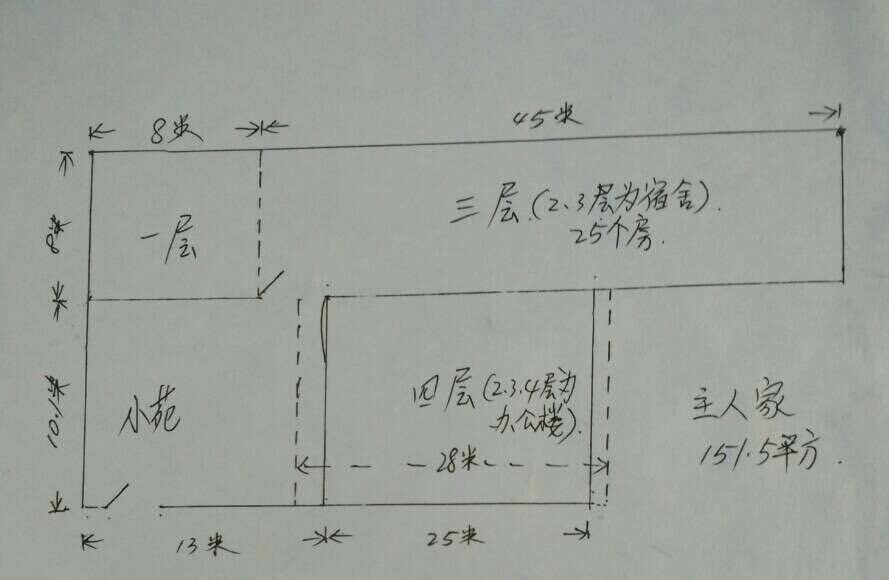 8米
45米
8米
一层
三层(2.3层为宿舍).
25个房.
10.1米
小苑
四层(2.3.4层为
办公楼).
28米
主人家
151.5平方.
13米
25米